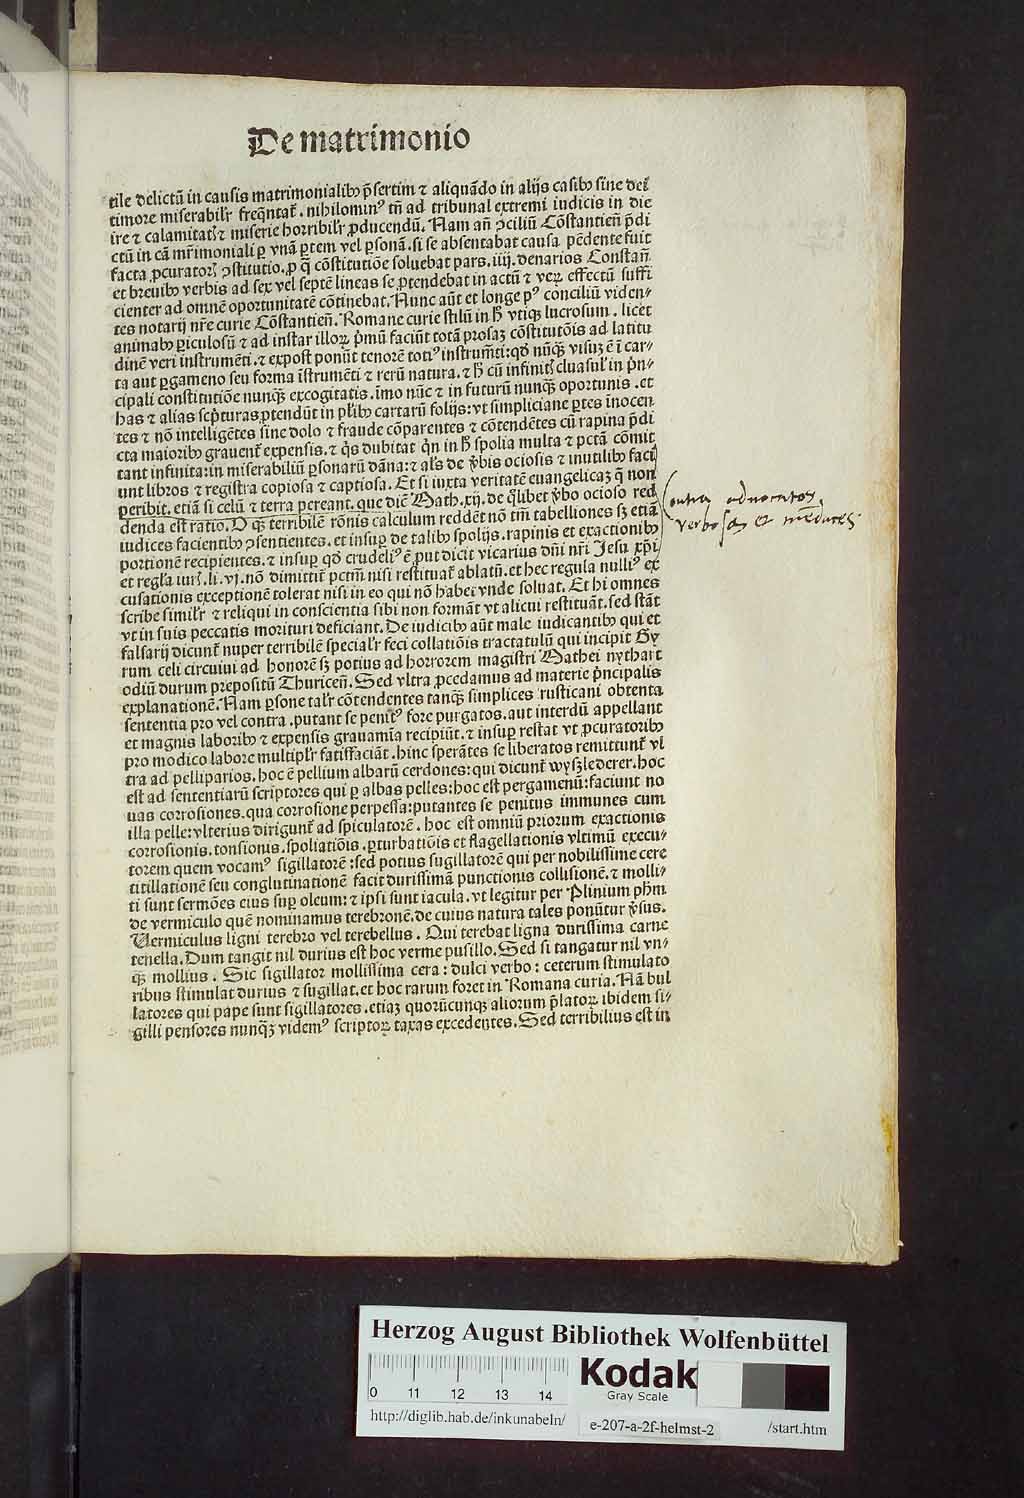 De matrimonio
tile delictū in causis matrimonialibꝰ p̄sertim ⁊ aliquādo in alijs casibꝰ sine dei
timore miserabilr̄ freq̄ntat̄. nihilominꝰ tn̄ ad tribunal extremi iudicis in die
ire ⁊ calamitatꝭ ⁊ miserie horribilr̄ ꝓducendū. Nam an̄ ꝯciliū Cōstantien̄ p̄di
ctū in cā mr̄imoniali ꝑ vnā ꝑtem vel ꝑsonā. si se absentabat causa pēdente fuit
facta ꝓcuratorꝭ ꝯstitutio. ꝓ q̄ cōstitutiōe soluebat pars. iiij. denarios Constan̄
et breuibꝰ verbis ad sex vel septē lineas se ꝓtendebat in actū ⁊ veꝝ effectū suffi
cienter ad omnē oportunitatē cōtinebat. Nunc aūt et longe pꝰ conciliū viden-
tes notarij nr̄e curie Cōstantien̄. Romane curie stilū in H̄ vtiqꝫ lucrosum. licet
animabꝰ ꝑiculosū ⁊ ad instar illoꝝ p̄mū faciūt totā prosaꝫ cōstitutōis ad latitu
dinē veri instrumēti. ⁊ expost ponūt tenorē totiꝰ instrum̄ti: qd̄ nūqꝫ visuꝫ ē ī car-
ta aut ꝑgameno seu forma īstrumēti ⁊ rerū natura. ⁊ H̄ cū infinitꝭ clausul' in p̄n-
cipali constitutiōe nunqꝫ excogitatis. īmo nūc ⁊ in futurū nunqꝫ oportunis. et
has ⁊ alias scp̄turas ꝓtendūt in pl'ibꝰ cartarū folijs: vt simpliciane ꝑtes īnocen
tes ⁊ nō intelligētes sine dolo ⁊ fraude cōparentes ⁊ cōtendētes cū rapina p̄di
cta maioribꝰ grauent̄ expensis. ⁊ q̇s dubitat q̇n in H̄ spolia multa ⁊ pctā cōmit
tant infinita: in miserabiliū ꝑsonarū dāna: ⁊ al's de v̄bis ociosis ⁊ inutilibꝰ faci
unt libros ⁊ registra copiosa ⁊ captiosa. Et si iuxta veritatē euangelicaꝫ q̄ non
peribit. etiā si celū ⁊ terra pereant. que dic̄ Math. xij. de q̄libet v̄bo ocioso red
denda est ratio. O qꝫ terribilē rōnis calculum reddēt nō tm̄ tabelliones sꝫ etiā
iudices facientibꝰ ꝯsentientes. et insuꝑ de talibꝰ spolijs. rapinis et exactionibꝰ
portionē recipientes. ⁊ insuꝑ qd̄ crudeliꝰ ē ꝓut dicit vicarius dn̄i nr̄i Jesu xp̄i
et regl'a iurꝭ. li. vj. nō dimittit̄ pctm̄ nisi restituat̄ ablatū. et hec regula nulliꝰ ex
cusationis exceptionē tolerat nisi in eo qui nō habet vnde soluat. Et hi omnes
scribe similr̄ ⁊ reliqui in conscientia sibi non formāt vt alicui restituāt. sed stāt
vt in suis peccatis morituri deficiant. De iudicibꝰ aūt male iudicantibꝰ qui et
falsarij dicunt̄ nuper terribilē specialr̄ feci collatiōis tractatulū qui incipit Gy
rum celi circuiui ad honorē sꝫ potius ad horrorem magistri Mathei nythart
odiū durum prepositū Thuricen̄. Sed vltra ꝓcedamus ad materie p̄ncipalis
explanationē. Nam ꝑsone talr̄ cōtendentes tanqꝫ simplices rusticani obtenta
sententia pro vel contra. putant se penitꝰ fore purgatos. aut interdū appellant
et magnis laboribꝰ ⁊ expensis grauamīa recipiūt. ⁊ insuꝑ restat vt ꝓcuratoribꝰ
pro modico labore multiplr̄ satisfaciāt. hinc sperātes se liberatos remittunt̄ vl
tra ad pelliparios. hoc ē pellium albarū cerdones: qui dicunt̄ wyszlederer. hoc
est ad sententiarū scriptores qui ꝑ albas pelles: hoc est pergamenū: faciunt no
uas corrosiones. qua corrosione perpessa: putantes se penitus immunes cum
illa pelle: vlterius dirigunt̄ ad spiculatorē. hoc est omniū priorum exactionis
corrosionis. tonsionis. spoliatiōis. ꝑturbatiōis et flagellationis vltimū execu-
torem quem vocamꝰ sigillatorē: sed potius sugillatorē qui per nobilissime cere
titillationē seu conglutinationē facit durissimā punctionis collisionē. ⁊ molli-
ti sunt sermōes eius suꝑ oleum: ⁊ ipsi sunt iacula. vt legitur per Plinium ph̄m
de vermiculo quē nominamus terebronē. de cuius natura tales ponūtur v̄sus.
Uermiculus ligni terebro vel terebellus. Qui terebat ligna durissima carne
tenella. Dum tangit nil durius est hoc verme pusillo. Sed si tangatur nil vn-
qꝫ mollius. Sic sigillator mollissima cera: dulci verbo: ceterum stimulato
ribus stimulat durius ⁊ sugillat. et hoc rarum foret in Romana curia. Nā bul
latores qui pape sunt sigillatores. etiaꝫ quorūcunqꝫ aliorum p̄latoꝝ ibidem si-
gilli pensores nunqꝫ videmꝰ scriptoꝝ taxas excedentes. Sed terribilius est in
Contra aduocatos
verbosos et mēdaces
Herzog August Bibliothek Wolfenbüttel
0 11 12 13 14
Kodak
Gray Scale
http://diglib.hab.de/inkunabeln/ e-207-a-2f-helmst-2 /start.htm